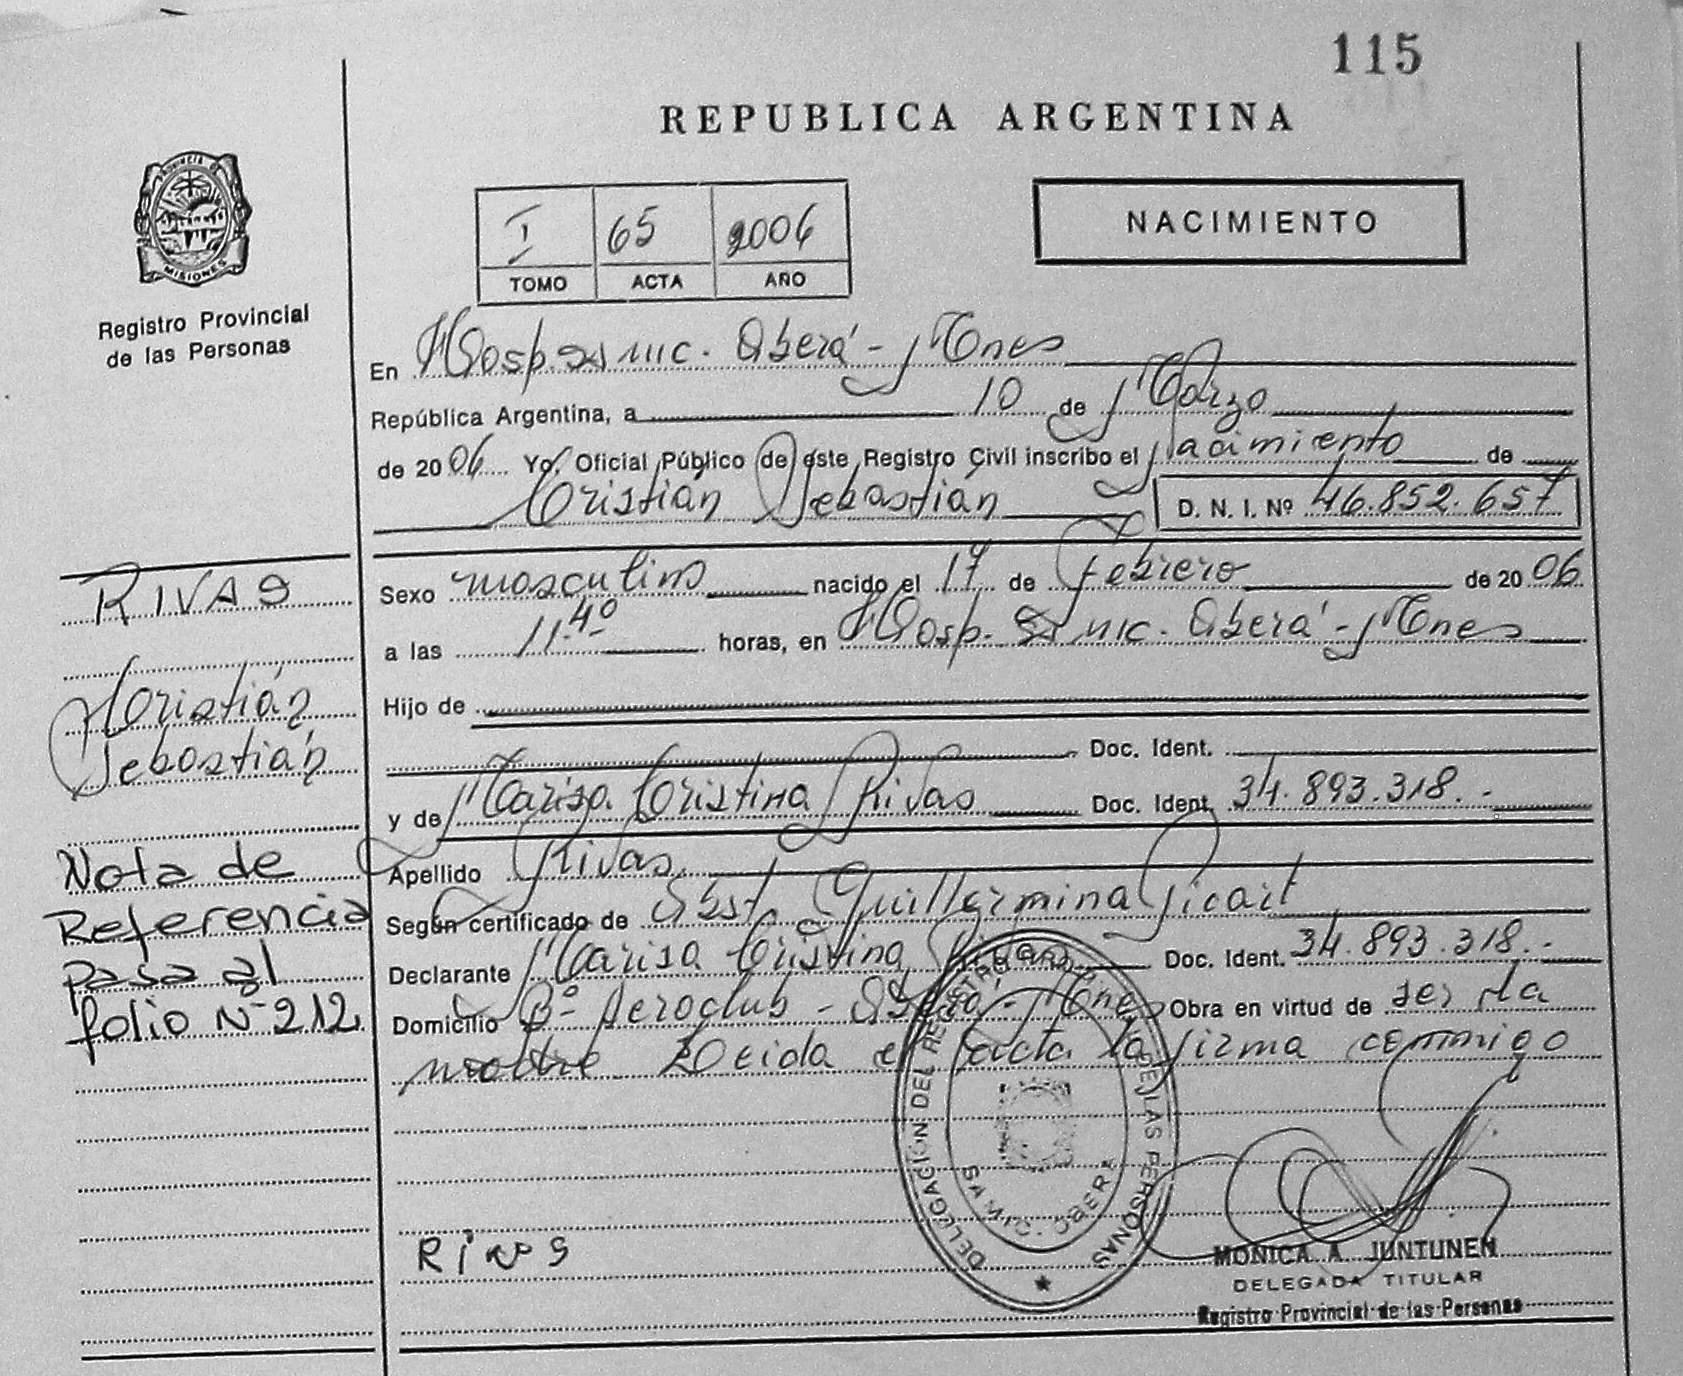 115
REPUBLICA ARGENTINA
PROVINCIA DE
MISIONES
Registro Provincial
de las Personas
I 65 2006
TOMO ACTA AÑO
NACIMIENTO
En Hosp. Samic. Oberá - Mnes
República Argentina, a 10 de Marzo
de 2006 Yo, Oficial Público de este Registro Civil inscribo el Nacimiento de
Cristián Sebastián D. N. I. Nº 46.852.657
RIVAS
Cristián
Sebastián
Nota de
Referencia
pasa al
folio Nº 212
Sexo masculino nacido el 17 de Febrero de 2006
a las 11.40 horas, en Hosp. Samic. Oberá - Mnes
Hijo de
Doc. Ident.
y de Marisa Cristina Rivas Doc. Ident. 34.893.318.-
Apellido Rivas.
Según certificado de Obst. Guillermina Picart
Declarante Marisa Cristina Rivas Doc. Ident. 34.893.318.-
Domicilio Bº Aeroclub - Oberá - Mnes Obra en virtud de ser la
madre Leida el acta la firma conmigo
DELEGACION DEL REGISTRO DE LAS PERSONAS
SAMIC - OBERA
Rivas
MONICA A. JUNTUNEN
DELEGADA TITULAR
Registro Provincial de las Personas